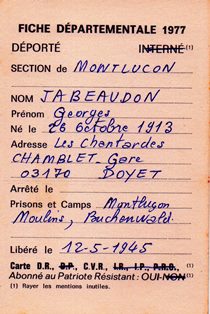 FICHE DÉPARTEMENTALE 1977
DÉPORTÉ INTERNÉ (1)
SECTION de MONTLUCON
NOM JABEAUDON
Prénom Georges
Né le 26 Octobre 1913
Adresse Les Chantardes
CHAMBLET-Gare
03170 DOYET
Arrêté le
Prisons et Camps Montluçon
Moulins, Buchenwald.
Libéré le 12-5-1945
Carte D.R., D.P., C.V.R., I.R., I.P., P.R.O., (1)
Abonné au Patriote Résistant : OUI-NON (1)
(1) Rayer les mentions inutiles.